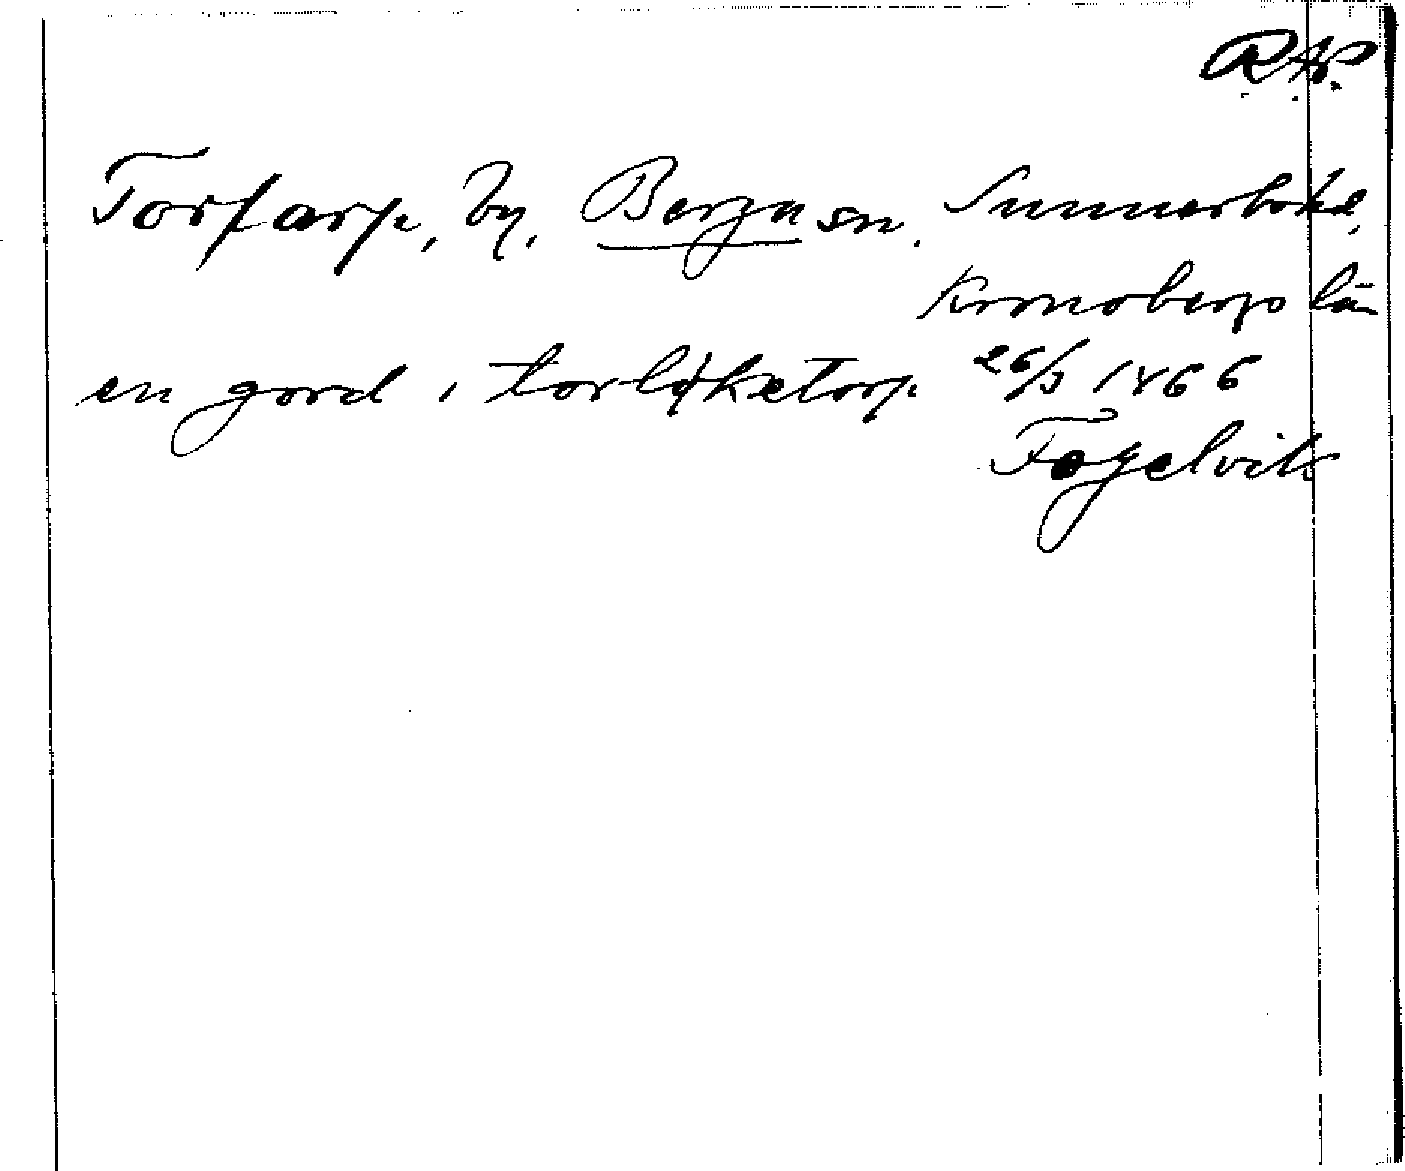 RAP.
Torsarp, by, Berga sn. Sunnerbo hd,
Kronobergs län
en gord i torlyketorp 26/3 1466
Fogelvik